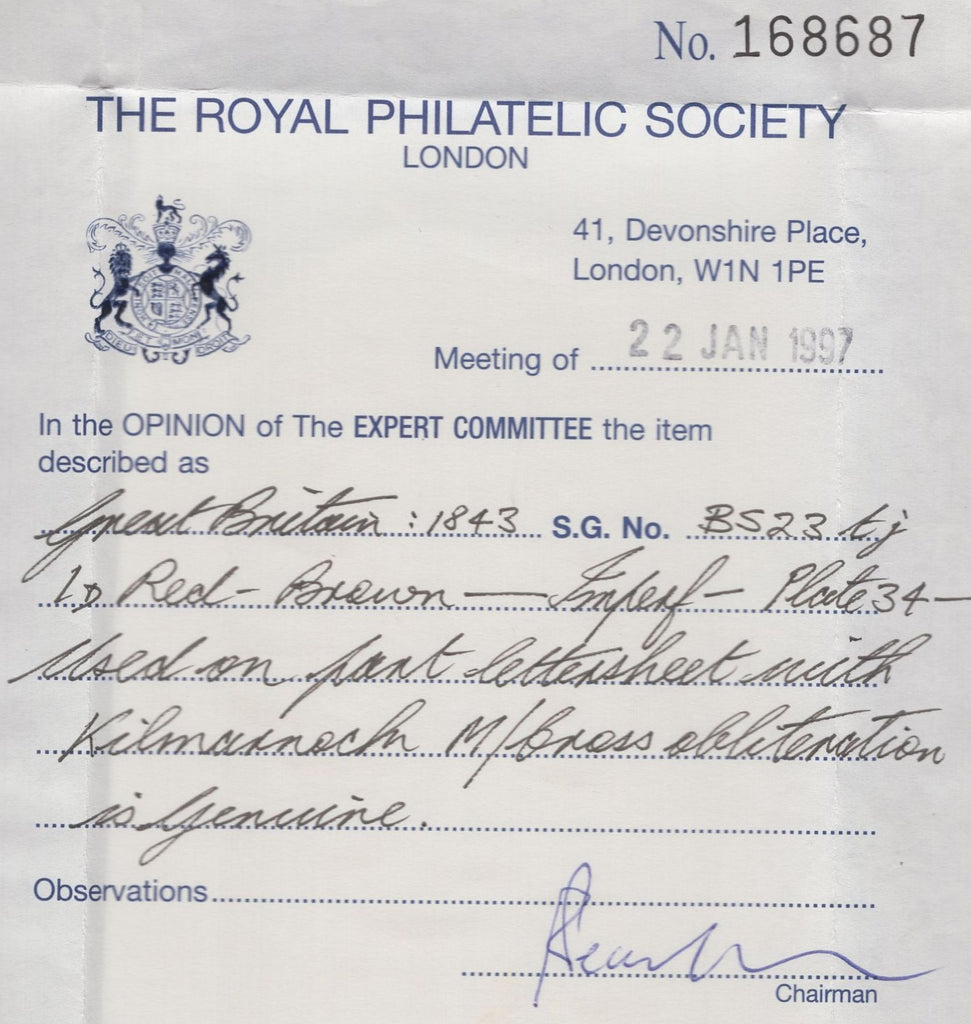 No. 168687
THE ROYAL PHILATELIC SOCIETY
LONDON
41, Devonshire Place,
London, W1N 1PE
Meeting of 22 JAN 1997
In the OPINION of The EXPERT COMMITTEE the item
described as
Great Britain : 1843 S.G. No. BS23 tj
1D Red-Brown — Imperf - Plate 34 —
Used on part lettersheet with
Kilmarnock M/Cross obliteration
is Genuine.
Observations
Chairman